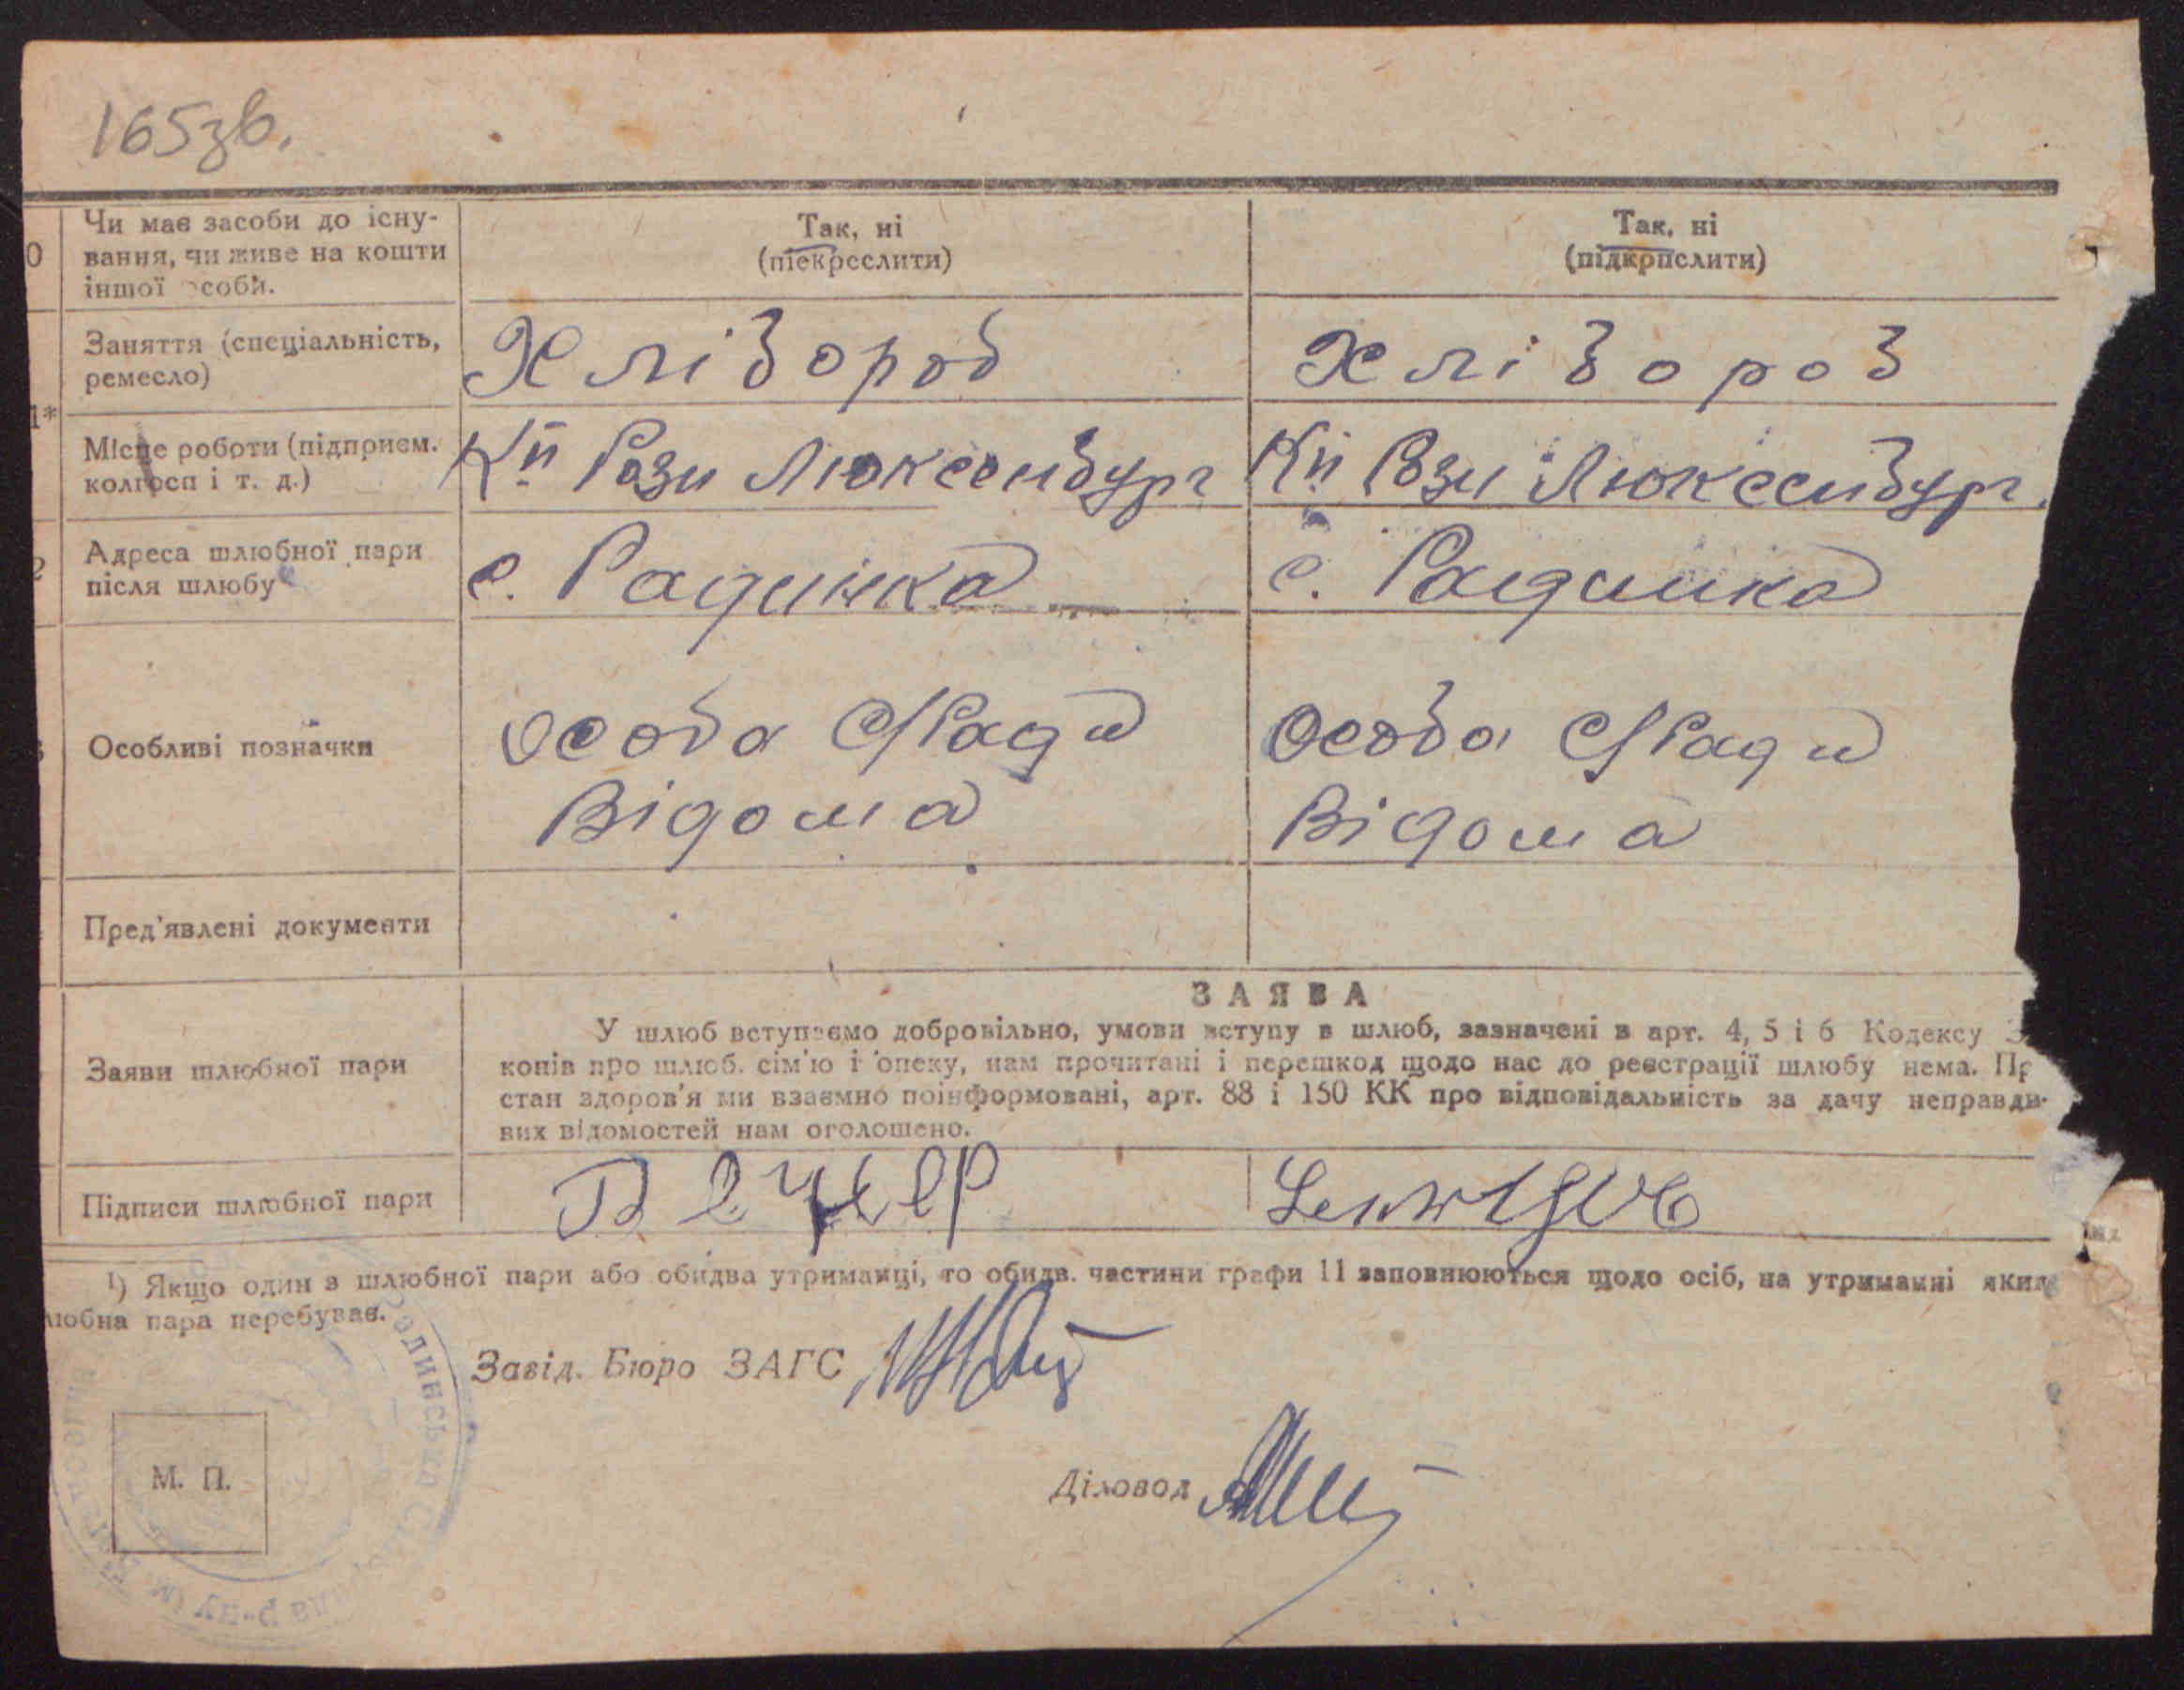 165зв.
0 Чи має засоби до існу-
вання, чи живе на кошти
іншої особи.
Так, ні
(піекресслити)
Так, ні
(підкрпслити)
Заняття (спеціальність,
ремесло)
Хлібороб
Хлібороб
1*
Місце роботи (підприєм.
колгосп і т. д.)
Кп Рози Люксембург
Кп Рози Люксембург
2 Адреса шлюбної пари
після шлюбу
с. Радинка
с. Радинка
Особливі позначки
Особа С/Ради
Відома
Особа С/Ради
Відома
Пред'явлені документи
ЗАЯВА
Заяви шлюбної пари
У шлюб вступаємо добровільно, умови вступу в шлюб, зазначені в арт. 4, 5 і 6 Кодексу З
конів про шлюб. сім'ю і опеку, нам прочитані і перешкод щодо нас до реєстрації шлюбу нема. Пр
стан здоров'я ми взаємно поінформовані, арт. 88 і 150 КК про відповідальність за дачу неправди-
вих відомостей нам оголошено.
Підписи шлюбної пари
¹) Якщо один з шлюбної пари або обидва утриманці, то обидв. частини графи 11 заповнюються щодо осіб, на утриманні яких
любна пара перебуває.
Завід. Бюро ЗАГС
М. П.
Діловод